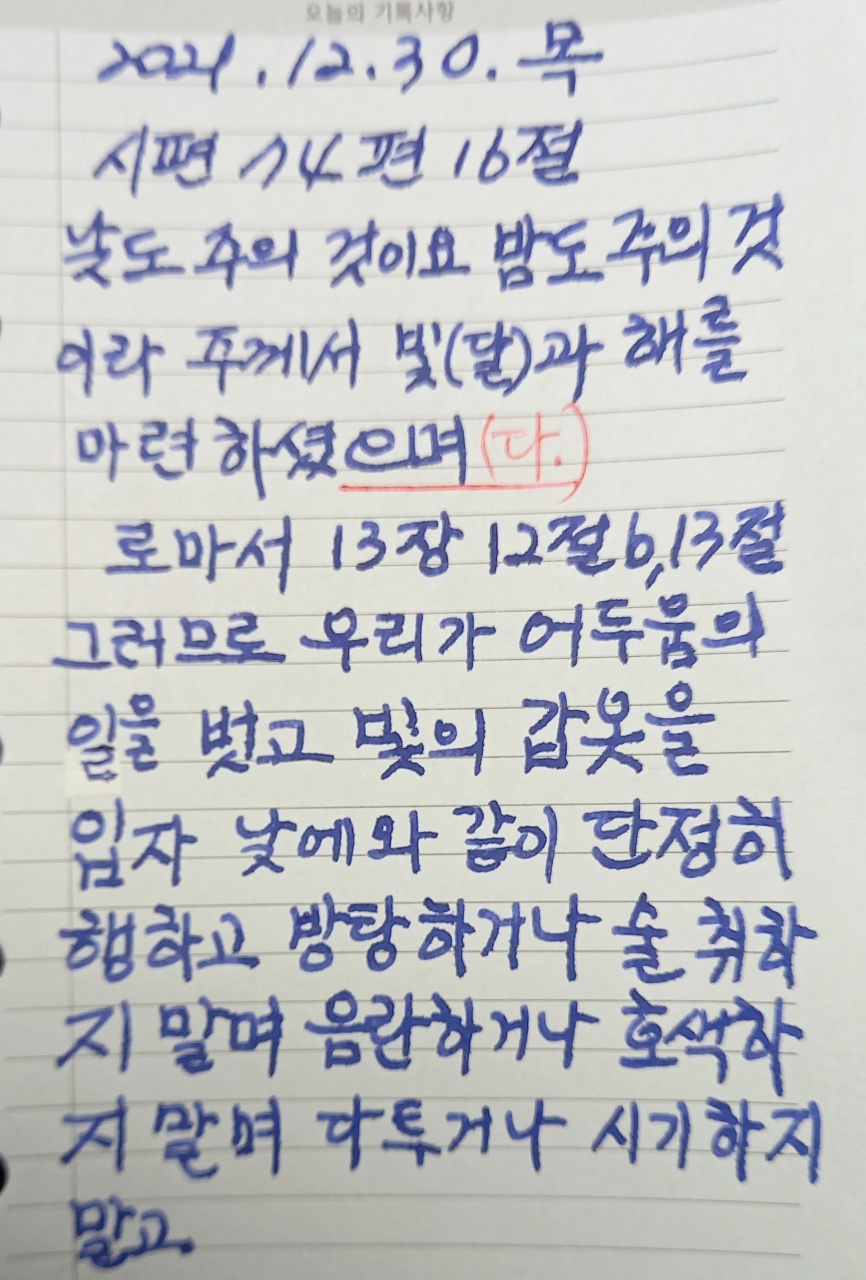 오늘의 기록사항
2021.12.30.목
시편 74편 16절
낮도 주의 것이요 밤도 주의 것
이라 주께서 빛(달)과 해를
마련하셨으며(다.)
로마서 13장 12절b,13절
그러므로 우리가 어두움의
일을 벗고 빛의 갑옷을
입자 낮에와 같이 단정히
행하고 방탕하거나 술 취하
지 말며 음란하거나 호색하
지 말며 다투거나 시기하지
말고